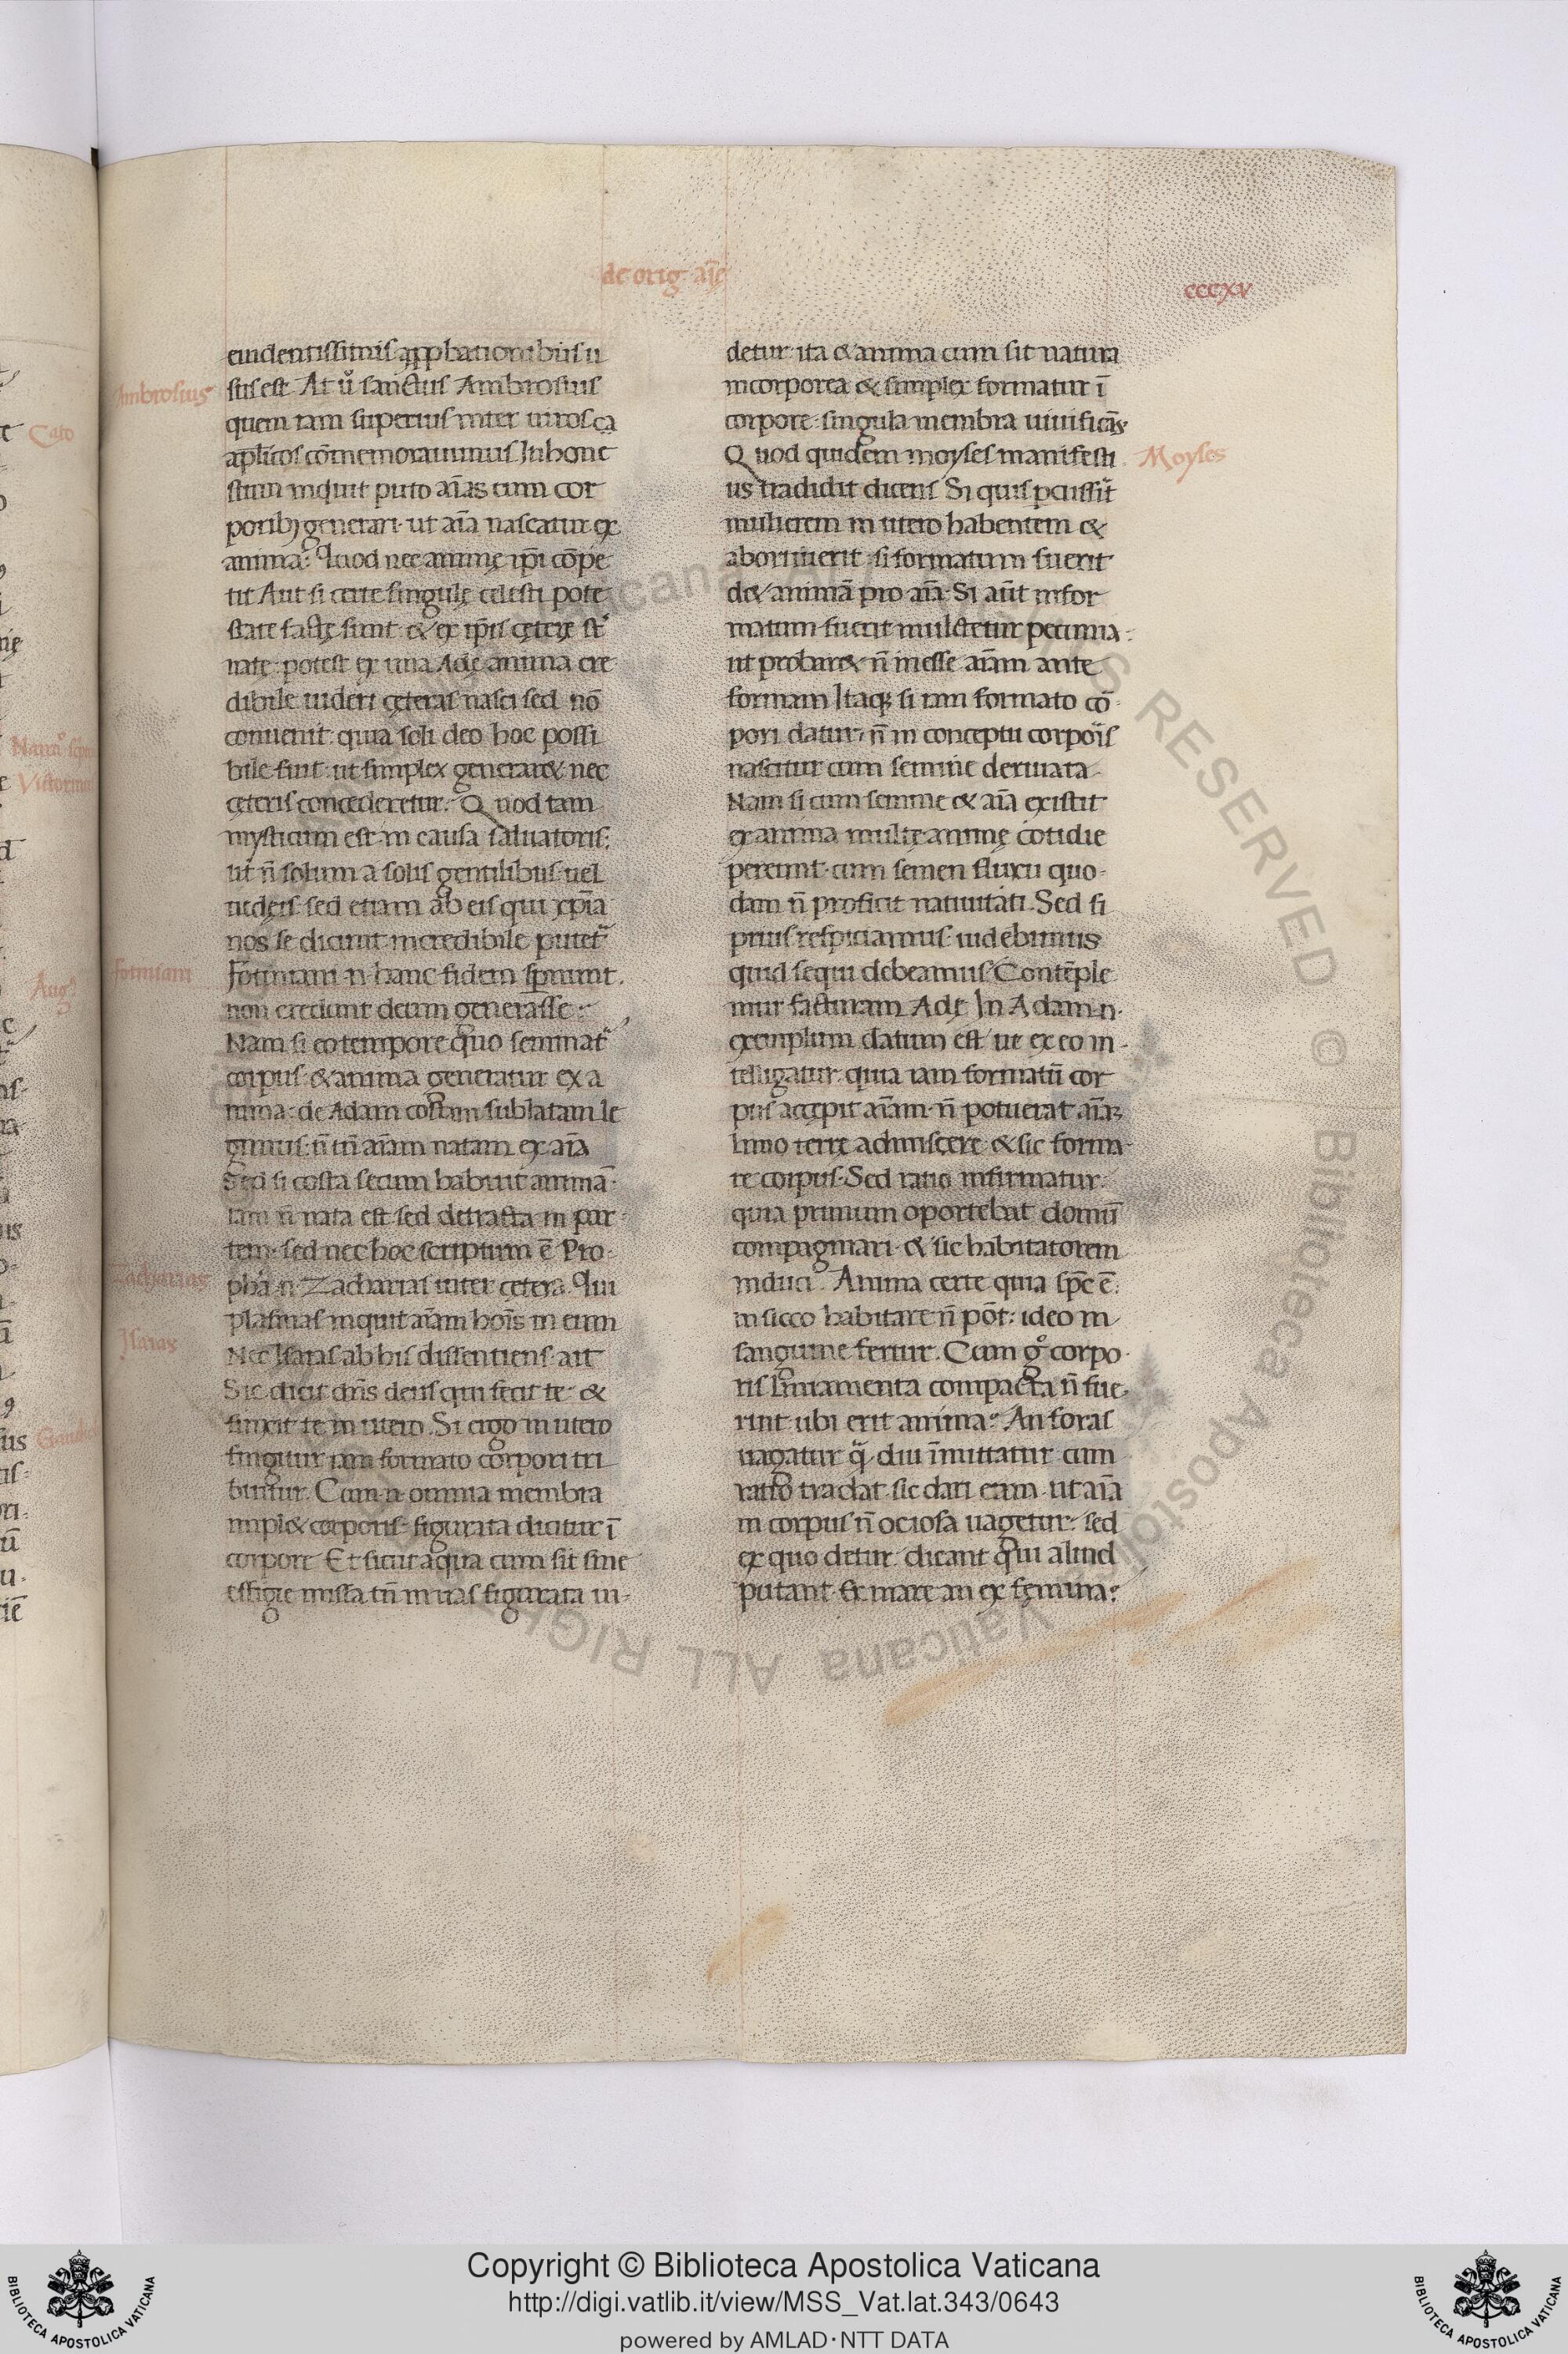 de orig aīę
cccxv
euidentissimis approbationibus u
sus est At ů sanctus Ambrosius
Ambrosius
quem iam superius inter uiros ca
aplicos cōmemorauimus Inhone
stum inquit puto aīas cum cor
poribȝ generari· ut aīa nascatur ex
anima: Quod nec animę ipī cōpe
tit Aut si certe singulę celesti pote
state factę sunt· & ex ipsis cęterę st̄
natę· potest ex una Adę anima cre
dibile uideri cęteras nasci sed nō
conuenit· quia soli deo hoc possi
bile fuit· ut simplex generaret nec
cęteris concederetur. Quod tam
mysticum est in causa saluatoris:
ut n̄ solum a solis gentilibus uel
iudęis· sed etiam ab eis qui xp̄ia
nos se dicunt incredibile putet᷑
Fotiniani n· hanc fidem spernunt.
Fotiniani
non credunt deum generasse:
Nam si eo tempore quo seminat᷑
corpus· & anima generatur ex a
nima: de Adam costam sublatam le
gimus· n̄ tn̄ aīam natam ex aīa
Sed si costa secum habuit animā·
iam n̄ nata est sed detracta in par
tem· sed nec hoc scriptum ē Pro
pha n· Zacharias inter cętera· Qui
Zacharias
plasmas inquit aīam hoīs in eum
Nec Isaias ab his dissentiens ait
Isaias
Sic dicit dn̄s deus qui fecit te· &
finxit te in utero. Si ergo in utero
fingitur iam formato corpori tri
buitur. Cum n omnia membra
implet corporis· figurata dicitur ī
corpore Et sicut aqua cum sit sine
effigie missa tn̄ in uas figurata ui-
detur· ita & anima cum sit natura
incorporea & simplex formatur ī
corpore· singula membra uiuificās·
Quod quidem moyses manifesti
Moyses
us tradidit dicens Si quis pcussit᷑
mulierem in utero habentem &
abortiuerit· si formatum fuerit
det animā pro aīa· Si aut̄ infor
matum fuerit mulctetur pecunia·
ut probaret n̄ inesse aīam ante
formam Itaqȝ si iam formato cō
pori datur· n̄ in conceptu corporis
nascitur cum semine deriuata·
Nam si cum semine & aīa existit
ex anima multę animę cotidie
pereunt· cum semen fluxu quo-
dam n̄ proficit natiuitati. Sed si
prius respiciamus· uidebimus
quid sequi debeamus Contēple
mur facturam Adę In Adam n·
exemplum datum est ut ex eo in-
telligatur· quia iam formatū cor
pus accępit aīam· n̄ potuerat aīaȝ
limo terrę admiscere· & sic forma
re corpus· Sed ratio infirmatur·
quia primum oportebat domū
compaginari· & sic habitatorem
induci. Anima certe quia spc̄ ē·
in sicco habitare n̄ pōt: ideo in
sanguine fertur. Cum gͦ corpo
ris liniamenta compacta n̄ fue-
rint· ubi erit anima? An foras
uagatur q̄ diu īmittatur· cum
ratio tradat· sic dari eam· ut aīa
in corpus n̄ ociosa uagetur· sed
ex quo detur· dicant qui aliud
putant· Ex mare an ex femina?
Copyright © Biblioteca Apostolica Vaticana
http://digi.vatlib.it/view/MSS_Vat.lat.343/0643
powered by AMLAD·NTT DATA